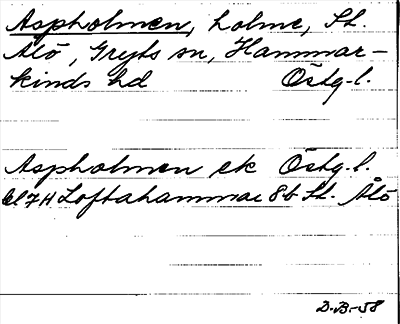 Aspholmen, holme, St.
Alö, Gryts sn, Hammar-
kinds hd Östg.l.
Aspholmen ek Östg.l.
bl 7H Loftahammar 8b St. Ålö
D.B.-58